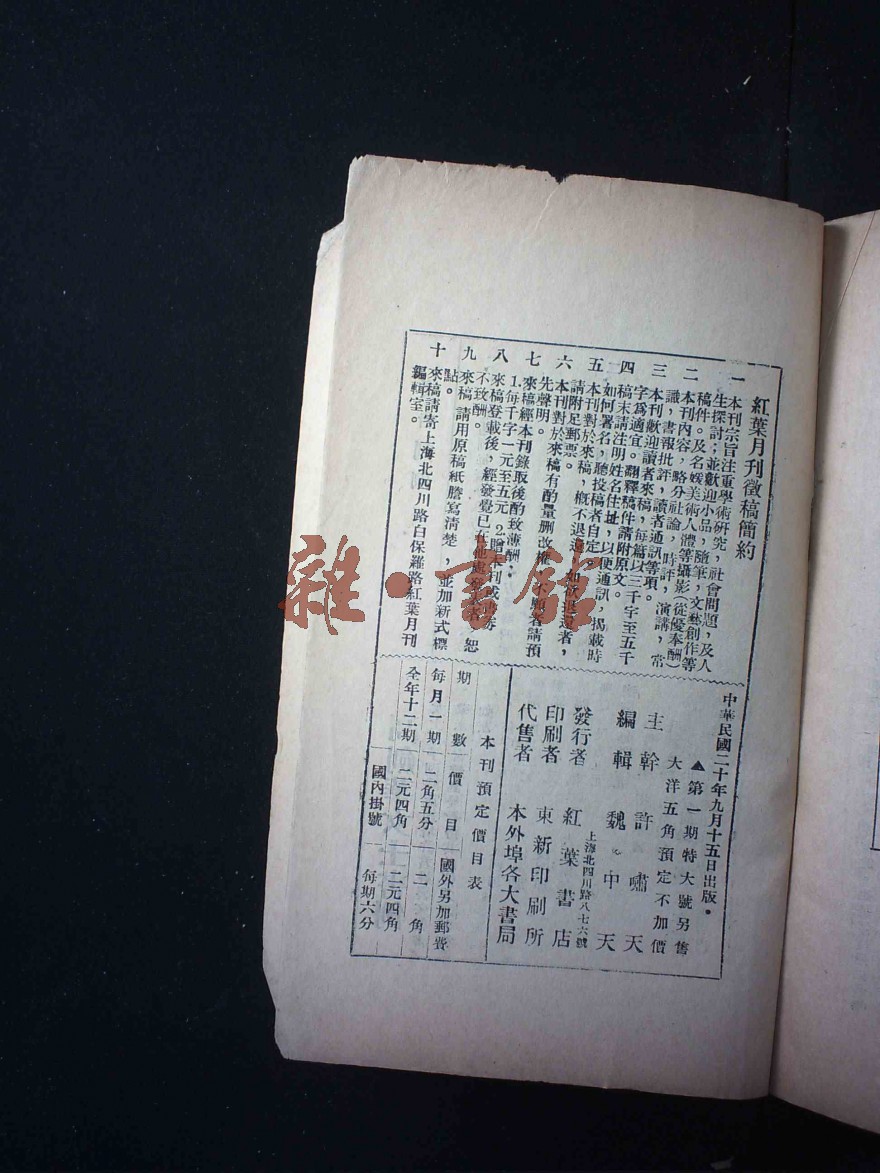 紅葉月刊徵稿簡約
一 本刊宗旨注重學術研究，社會問題，及人
生探討；並歡迎小品，隨筆，文藝創作等
稿件。及名媛美術人體等攝影（從優奉酬）
二 本刊內容，略分社論，時評，演講，常
識，書報批評，讀者通訊等項。
三 本刊歡迎讀者來稿，每篇以三千字至五千
字爲適宜。翻釋稿件請附原文。
四 稿末請注明姓名住址，以便通訊，揭載時
如何署名，聽投稿者自定。
五 本刊對於來稿，概不退還，如欲退還者，
請附足郵票。
六 本刊對於來稿有酌量删改權，不願者請預
先聲明。
七 來稿經本刊錄取後酌致薄酬：
1.每千字一元至五元 2.贈本刊或書券
八 來稿登載後，經發覺已在他處發表者，恕
不致酬。
九 來稿請用原稿紙謄寫清楚，並加新式標
點。
十 來稿請寄上海北四川路白保羅路紅葉月刊
編輯室。
中華民國二十年九月十五日出版。
▲第一期特大號另售
大洋五角預定不加價
主幹 許嘯天
編輯 魏中天
上海北四川路八七六號
發行者 紅葉書店
印刷者 東新印刷所
代售者 本外埠各大書局
本刊預定價目表
期數 價目 國外另加郵費
每月一期 二角五分 二角
全年十二期 二元四角 二元四角
國內掛號 每期六分
雜·書館